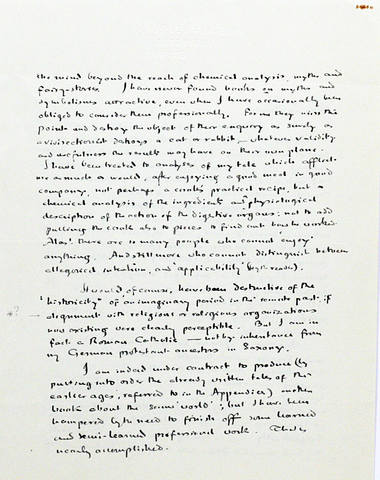 the mind beyond the reach of chemical analysis, myths and
fairy-stories. I have never found books on myths and
symbolisms attractive, even when I have occasionally been
obliged to consider them professionally. For me they miss the
point and destroy the object of their enquiry as surely as
a vivisectionist destroys a cat or rabbit – whatever validity
and usefulness the result may have on their own plane.
I have been treated to analyses of my tale which affected
me as much as would, after enjoying a good meal in good
company, not perhaps a cook's practical recipe, but a
chemical analysis of the ingredients and physiological
description of the action of the digestive organs: not to add
pulling the cook also to pieces to find out how he worked.
Alas! there are so many people who cannot 'enjoy'
anything. And still more who cannot distinguish between
allegorical intention, and 'applicability' (by the reader).
It would of course, have been destructive of the
"historicity" of an imaginary period in the remote past, if
alignment with religions or religious organizations
now existing were clearly perceptible. But I am in
fact a Roman Catholic – not by inheritance from
my German protestant ancestors in Saxony.
I am indeed under contract to produce (by
putting into order the already written tales of the
earlier ages, referred to in the Appendices) another
book about the same 'world'; but I have been
hampered by the need to finish off some learned
and semi-learned professional work. That is
nearly accomplished.